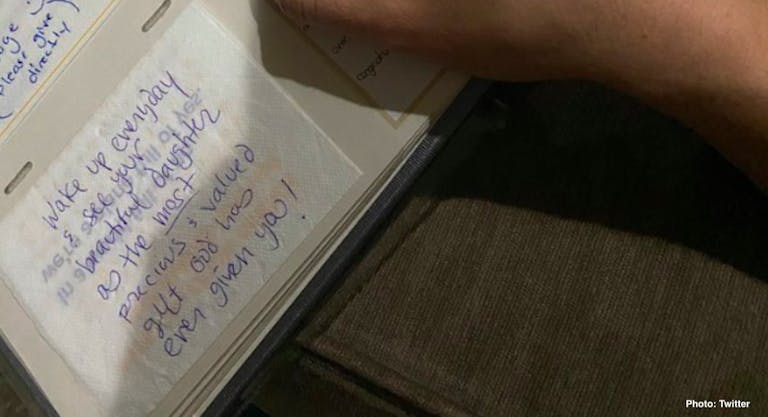 (Please give
directly)
Wake up everyday
& see your
beautiful daughter
as the most
precious & valued
gift God has
ever given you!
Photo: Twitter